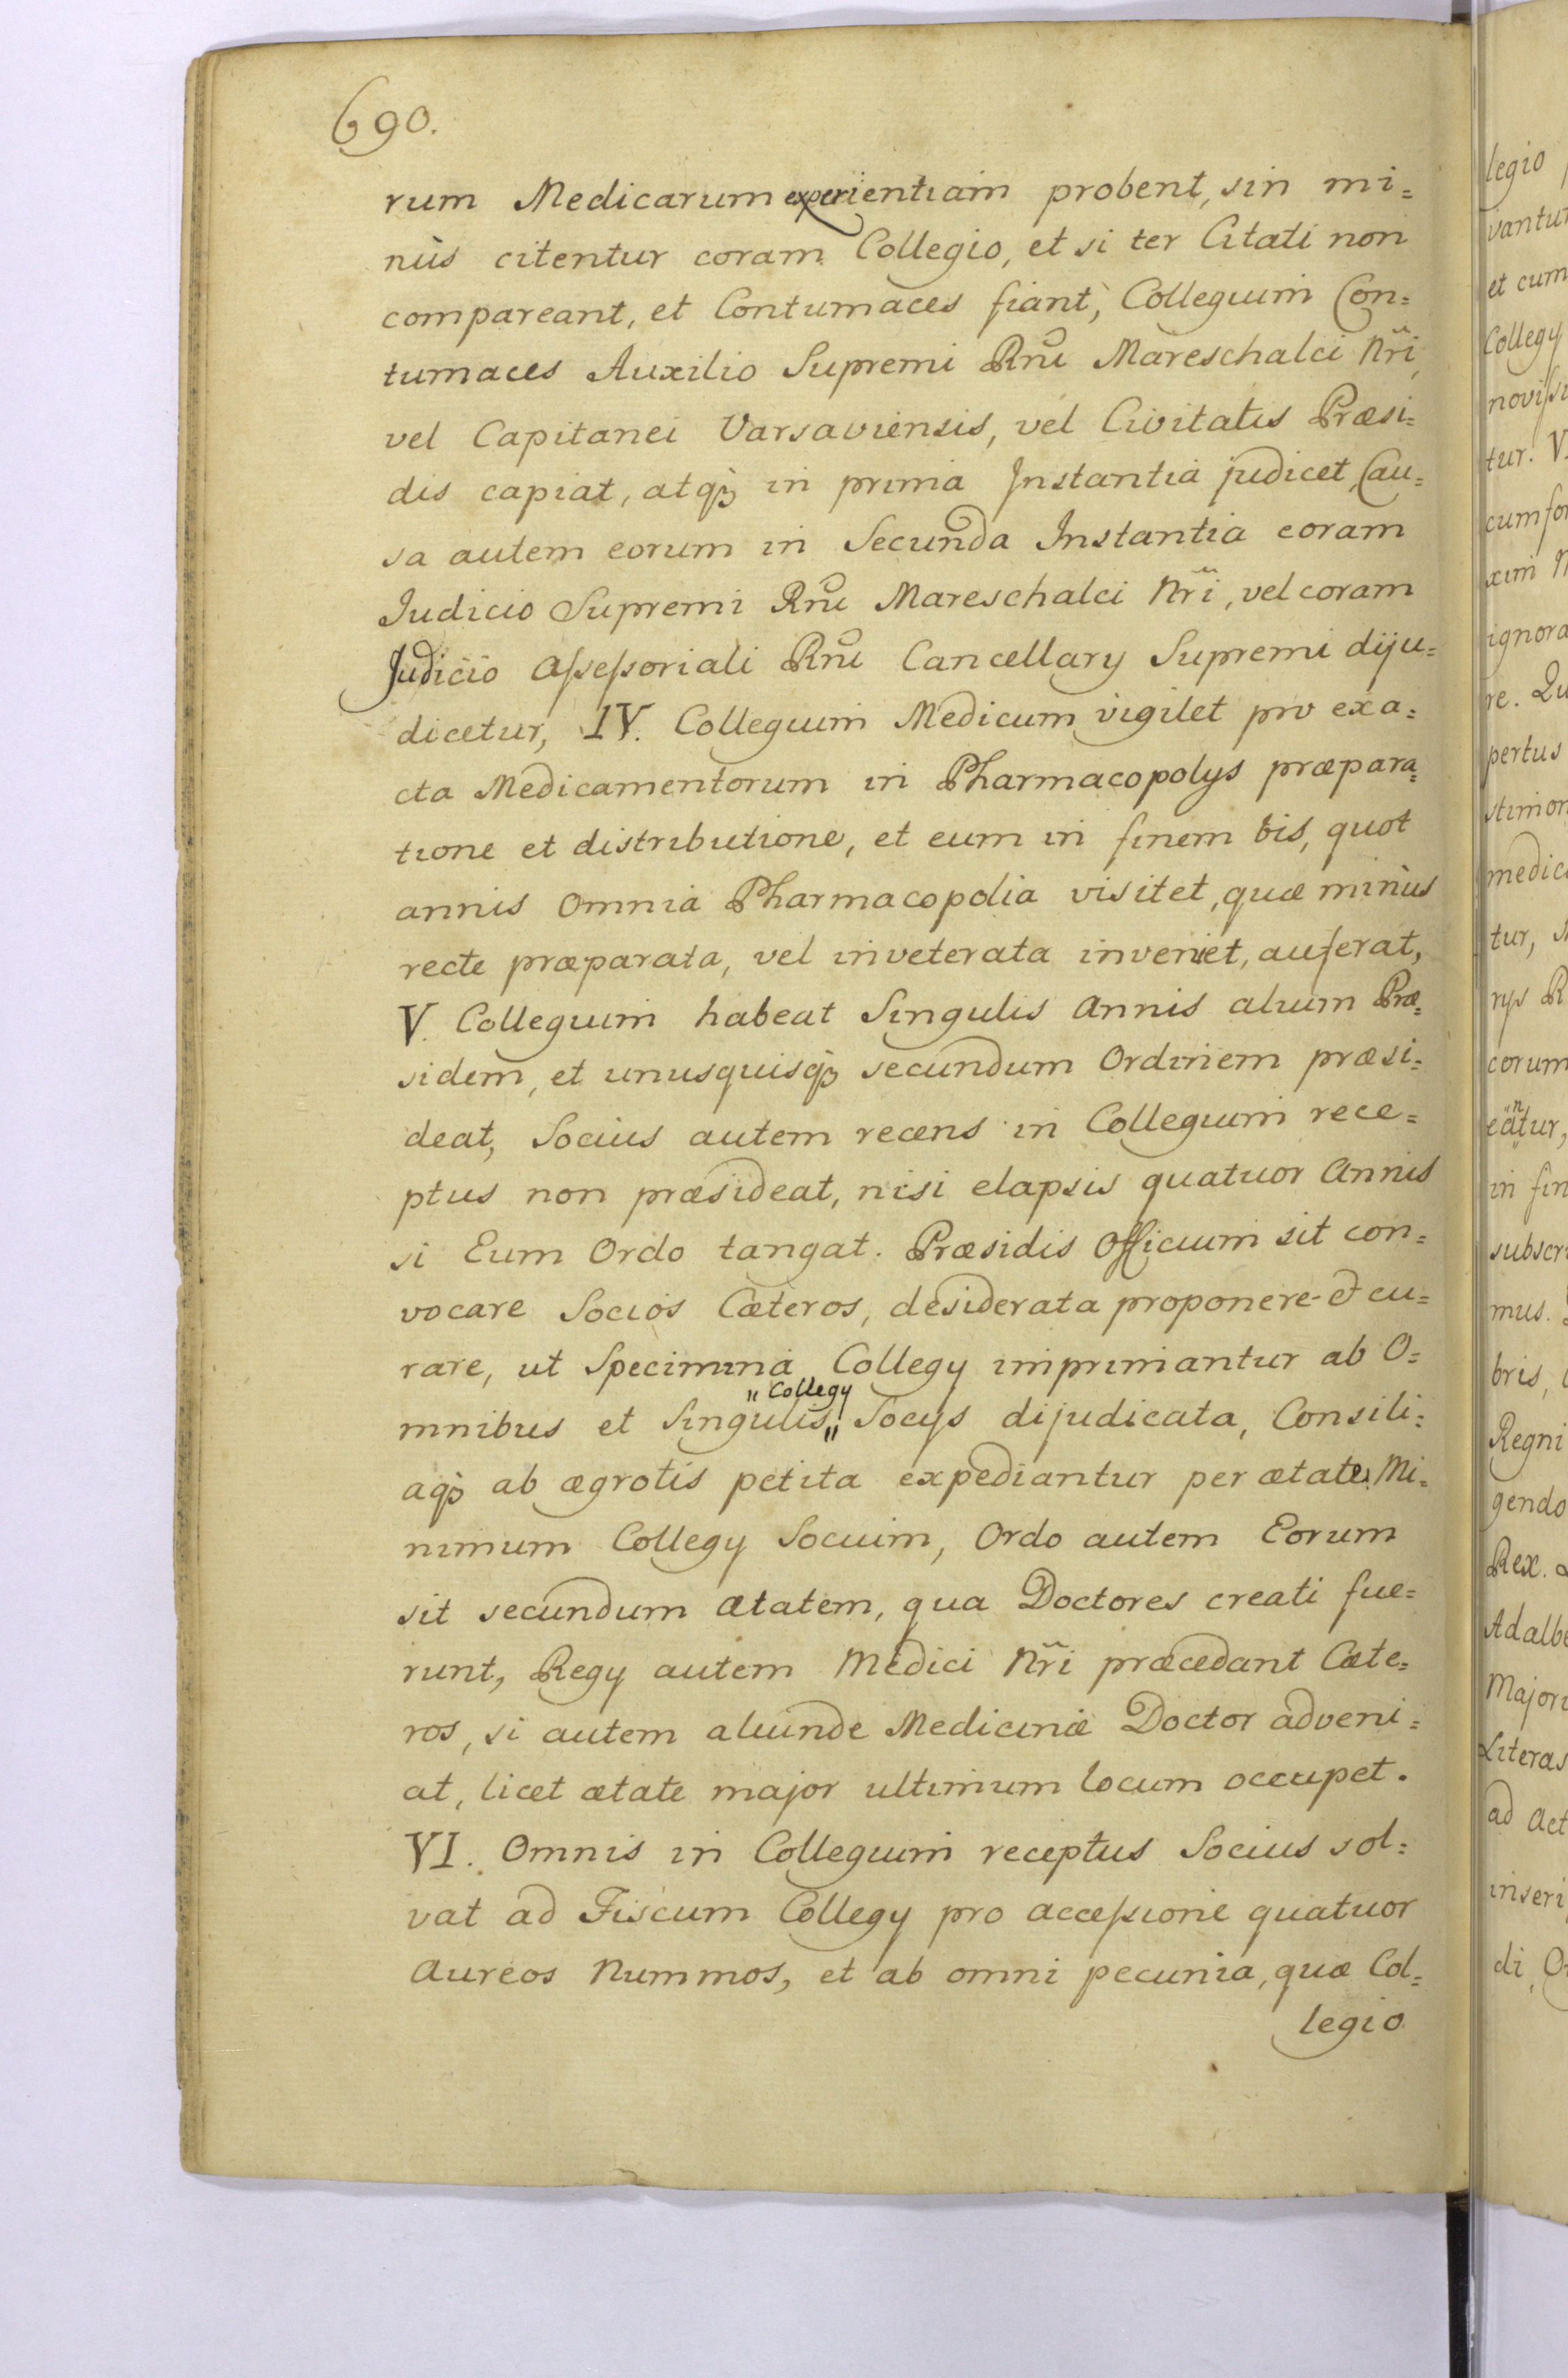 690.
rum Medicarum experientiam probent, sin mi=
nùs citentur coram Collegio, et si ter Citati non
compareant, et Contumaces fiant, Collegium Con=
tumaces Auxilio Supremi Rni Mareschalci Nr̃i,
vel Capitanei Varsaviensis, vel Civitatis Præsi=
dis capiat, atq3 in prima Instantia judicet, Cau=
sa autem eorum in Secunda Instantia coram
Judicio Supremi Rni Mareschalci Nr̃i, vel coram
Judicio Assessoriali Rni Cancellary Supremi diju=
dicetur, IV. Collegium Medicum vigilet pro exa=
cta Medicamentorum in Pharmacopolys præpara=
tione et distributione, et eum in finem bis, quot
annis Omnia Pharmacopolia visitet, quæ minùs
recte præparata, vel inveterata inveniet, auferat,
V. Collegium habeat Singulis Annis alium Præ=
sidem, et unusquisq3 secundum Ordinem præsi=
deat, Socius autem recens in Collegium rece=
ptus non præsideat, nisi elapsis quatuor Annis
si Eum Ordo tangat. Præsidis Officium sit con=
vocare Socios Cæteros, desiderata proponere et cu=
rare, ut Specimina Collegy imprimantur ab O=
" Collegy
mnibus et Singulis " Socys dijudicata, Consili=
aq3 ab ægrotis petita expediantur per ætate Mi=
nimum Collegy Socium, Ordo autem Eorum
sit secundum ætatem, qua Doctores creati fue=
runt, Regy autem Medici Nr̃i præcedant Cæte=
ros, si autem aliunde Medicinæ Doctor adveni=
at, licet ætate major ultimum locum occupet.
VI. Omnis in Collegium receptus Socius sol=
vat ad Fiscum Collegy pro accessione quatuor
Aureos Nummos, et ab omni pecunia, quæ Col=
legio
legio
vantur
et cum
Collegy
tur. V.
ignora
re. Qu
pertus
medic
tur,
corum
eantur,
in fin
subscr
mus.
bris,
Regni
gendo
Rex.
Adalbe
Majori
Literas
ad Act
inseri
di, O